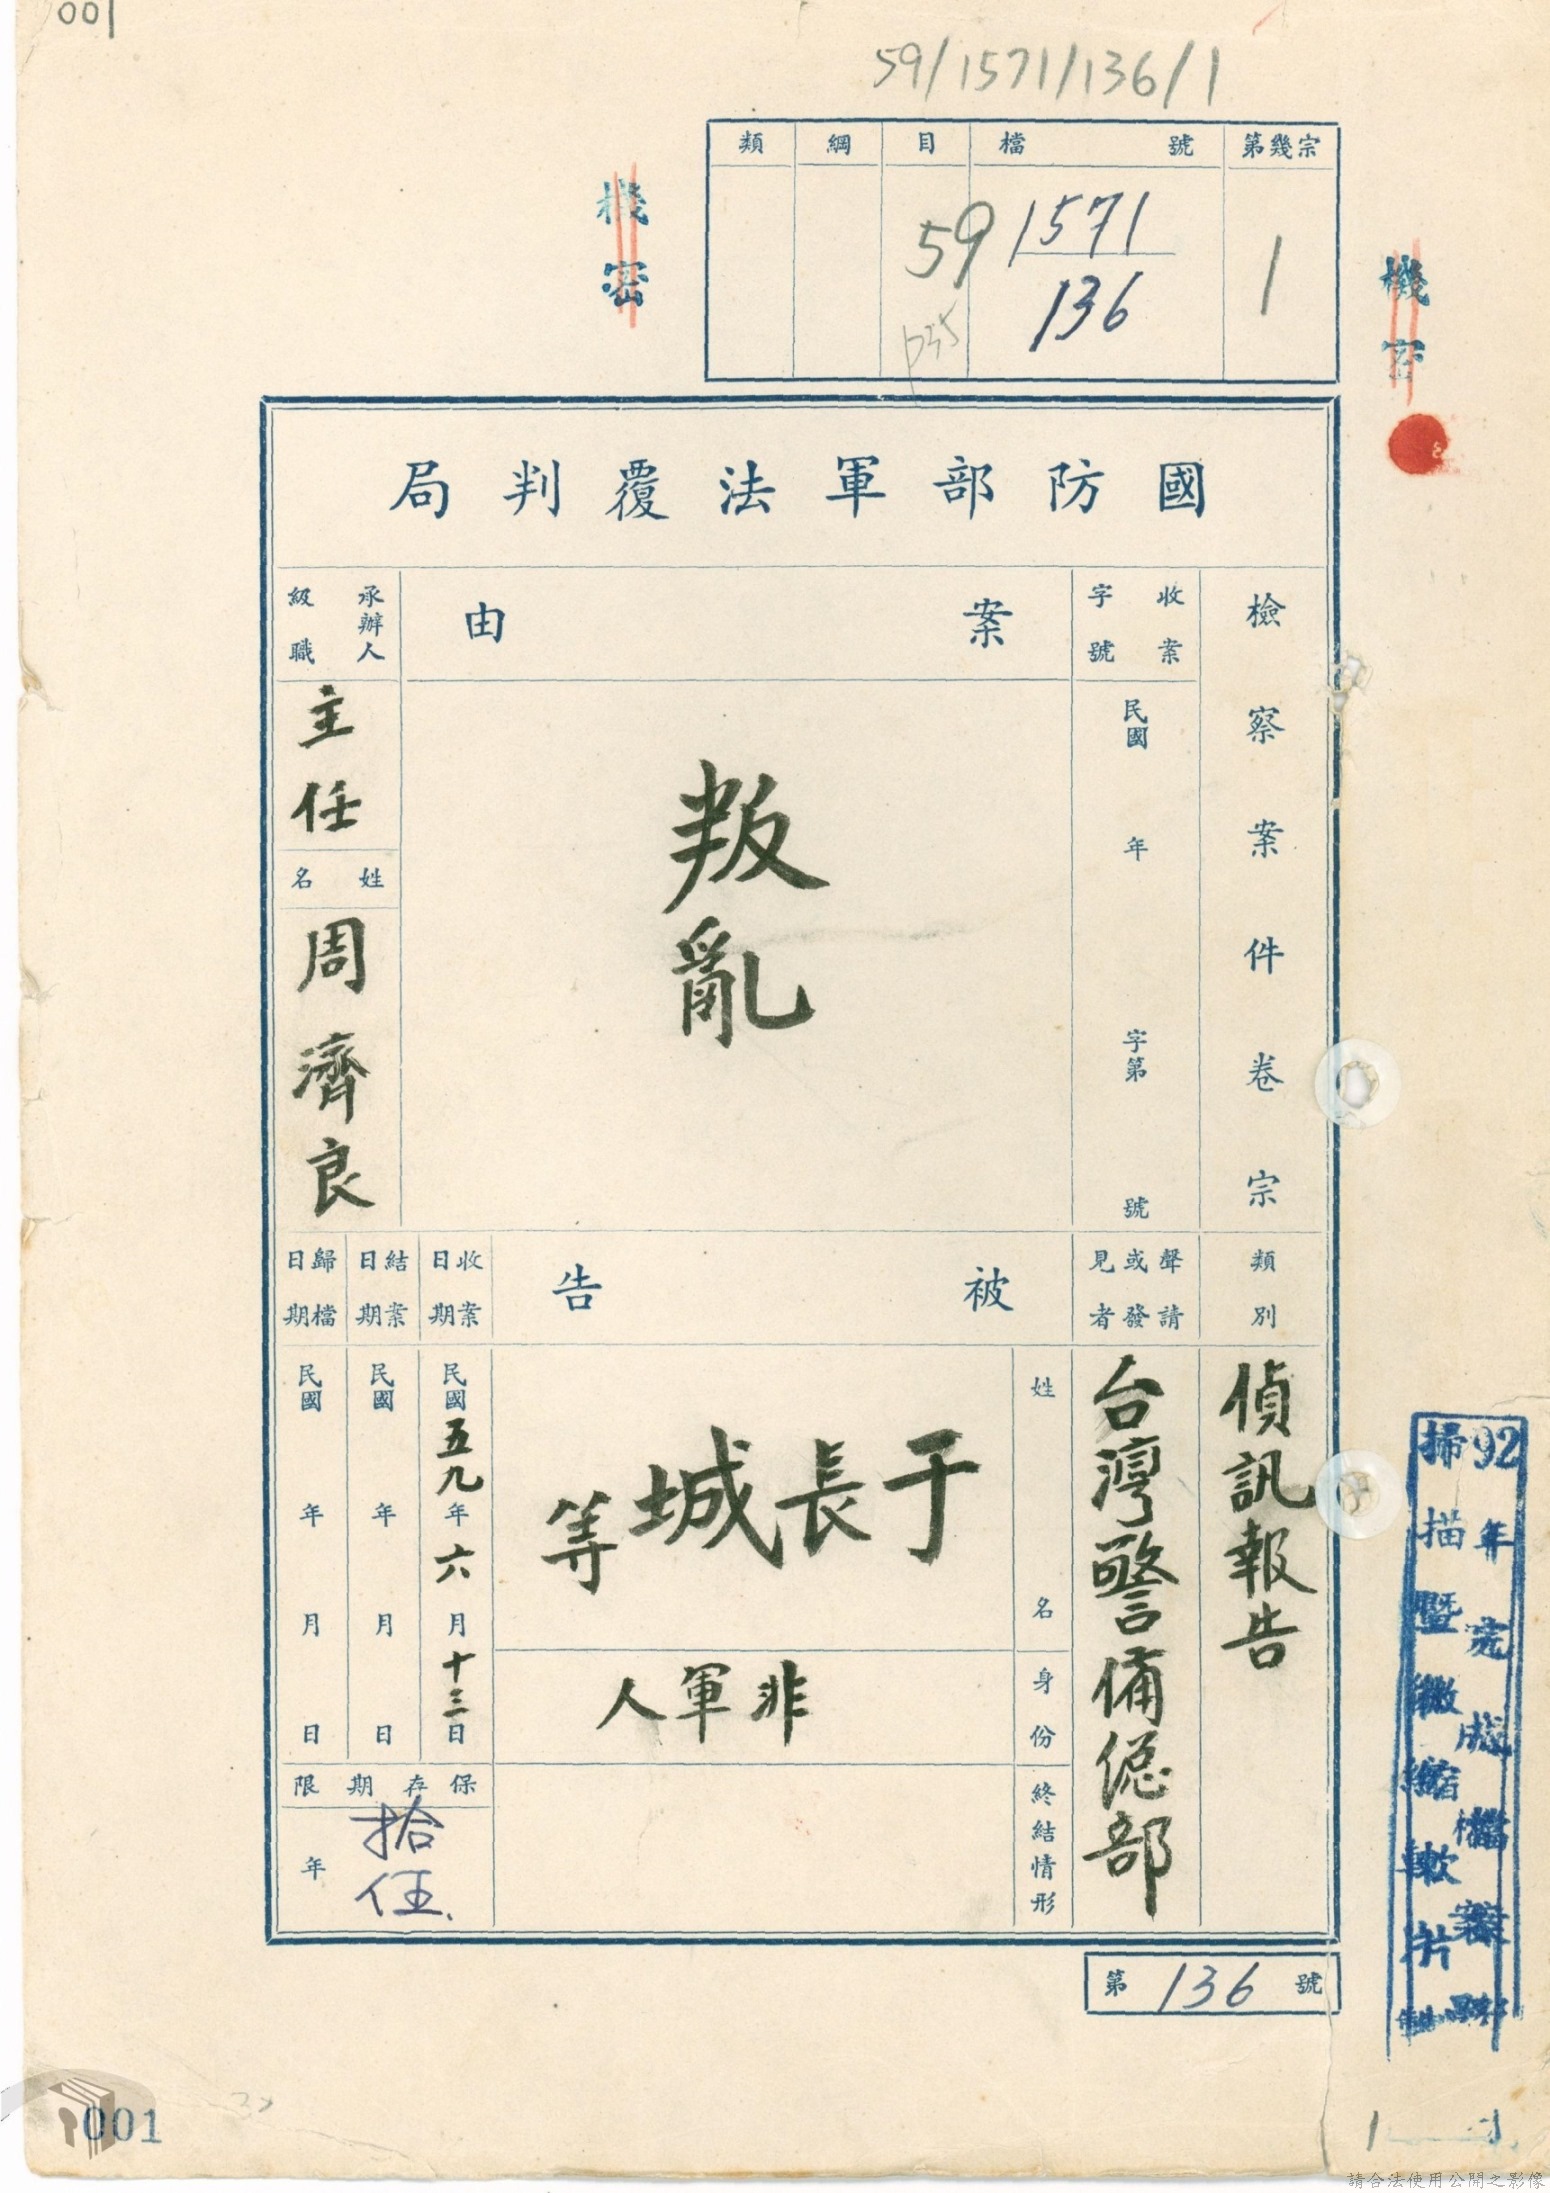 001
59/1571/136/1
第幾宗
檔號
目
綱
類
1
1571
136
59
p35
機密
機密
國防部軍法覆判局
檢察案件卷宗
收案字號
民國 年 字第 號
案由
叛亂
承辦人級職
主任
姓名
周濟良
類別
偵訊報告
聲請或發見者
台灣警備總部
被告
姓名
于長城等
身份
非軍人
終結情形
收案日期
民國五九年六月十三日
結案日期
民國 年 月 日
歸檔日期
民國 年 月 日
保存期限
拾伍 年
第 136 號
92年完成檔案
掃描暨微縮軟片
001
請合法使用公開之影像